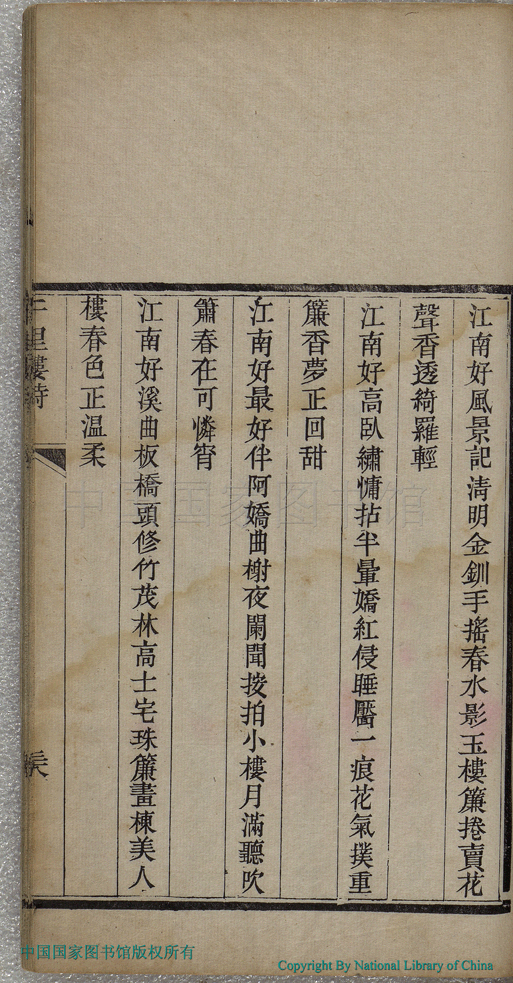 江南好風景記清明金釧手搖春水影玉樓簾捲賣花
聲香透綺羅輕
江南好高臥繡慵拈半暈嬌紅侵睡靨一痕花氣撲重
簾香夢正回甜
江南好最好伴阿嬌曲榭夜闌聞按拍小樓月滿聽吹
簫春在可憐宵
江南好溪曲板橋頭修竹茂林高士宅珠簾畫棟美人
樓春色正温柔
十里樓詩
中国国家图书馆
中国国家图书馆版权所有
Copyright By National Library of China